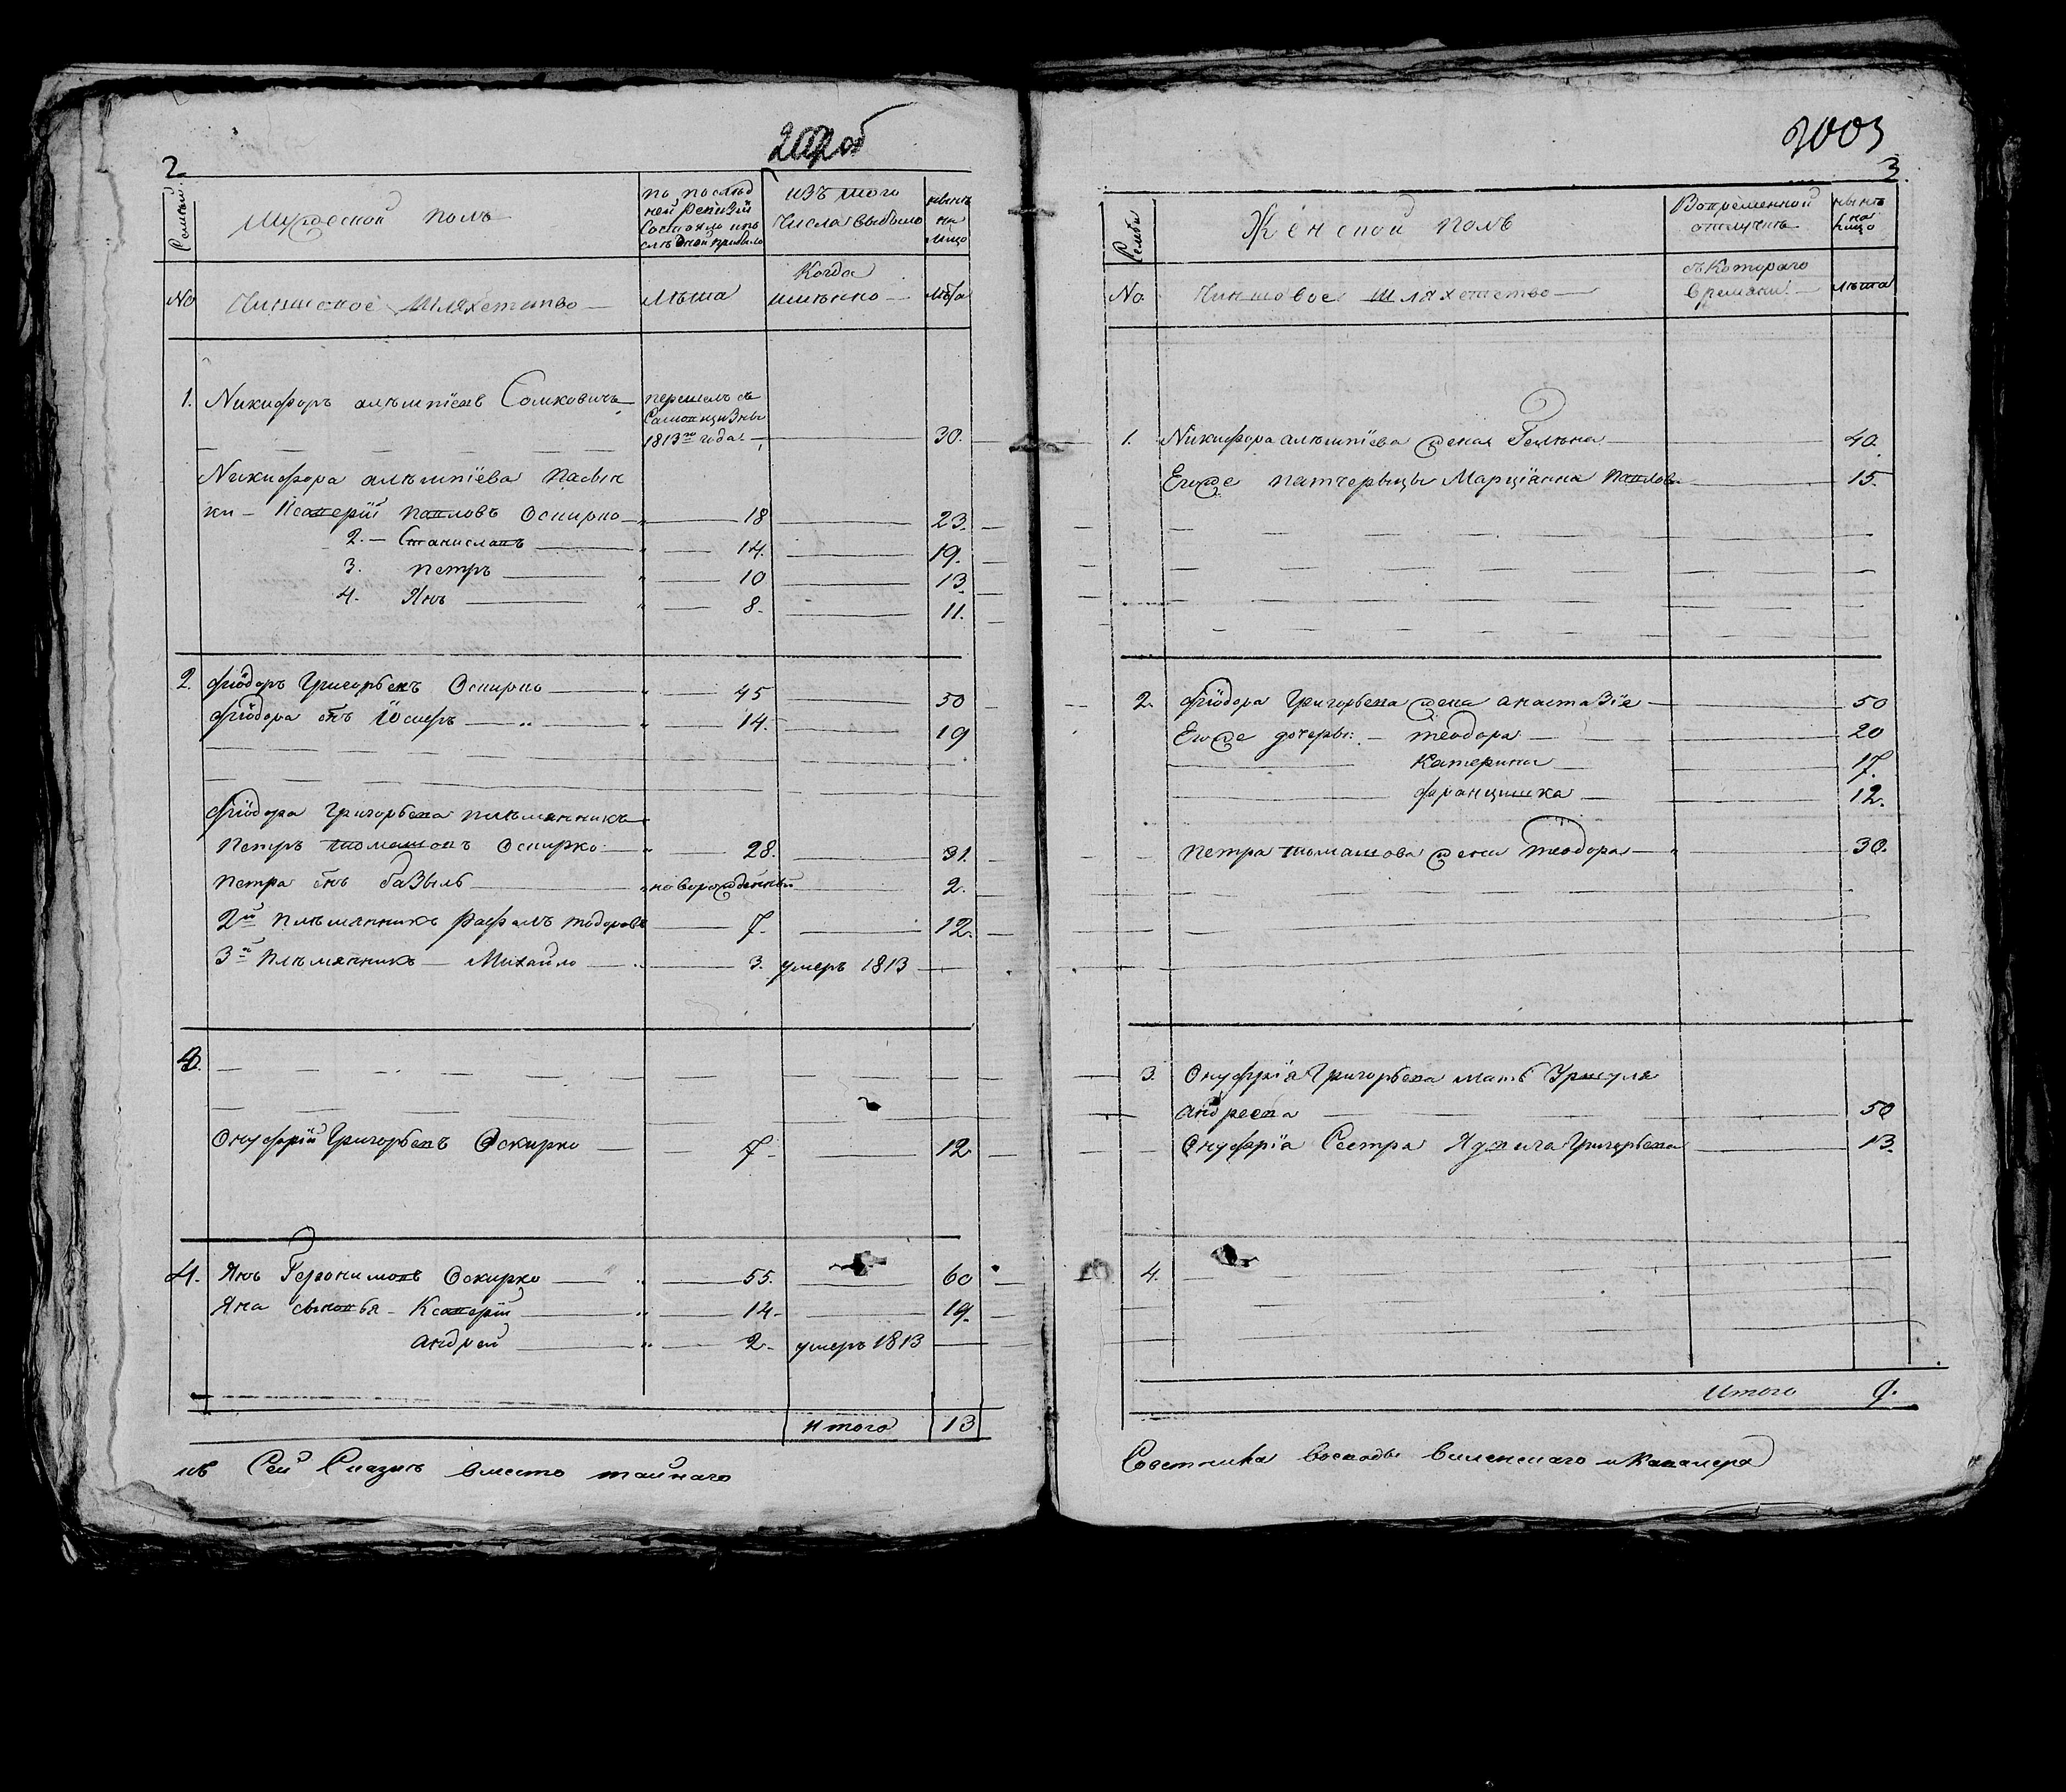 2
Семьи
Мужеской полъ
по послѣд
ней ревизіи
состояло и по
слѣ оной прибыло
изъ того
числа выбыло
нынѣ
на
лицо
No
Чиншовое Шляхетство
Лѣта
Когда
именно
Лѣта
1. Никифоръ алѣшпіевъ Сомковичъ перешелъ съ
1813го года 30.
Никифора алѣшпіева пасын
ки – Ксаверій павловъ Оскирко 18 23.
2. – Станиславъ 14. 19.
3. петръ 10 13.
4. Янъ 8. 11.
2. Фіодоръ Григорьевъ Оскирко 45 50
Фіодора снъ Іосифъ 14. 19
Фіодора Григорьева племянникъ
Петръ томашовъ Оскирко 28. 31.
Петра снъ базыль новорожденный 2.
2й племянникъ рафалъ тодоровъ 7. 12.
3й племянникъ Михайло 3. умеръ 1813
Онуфрій Григорьевъ Оскирко 7. 12
4. Янъ Геронимовъ Оскирко 55. 60
Яна сыновья – Ксаверій 14. 19.
андрей 2. умеръ 1813
итого 13
Сей Сказкѣ вместо тайнаго
3003
3.
Семьи
Женской полъ
Вовременной
отлучкѣ
нынѣ
на
лицо
No
Чиншовое шляхетство
съ Котораго
времени
лѣта
1. Никифора алѣшпіева жена Гелѣна 40.
Егоже патчерыцы Марціанна павлов. 15.
2. Фіодора Григорьева жена анастазія 50
Егоже дочеры: – теодора 20
Катерина 17.
францишка 12.
Петра томашова жена теодора 30.
3. Онуфрія Григорьева мать Уршуля
андреева 50
Онуфрія Сестра Ядвига Григорьева 13.
4.
Итого 9.
Советника воеводы виленскаго и Кавалера